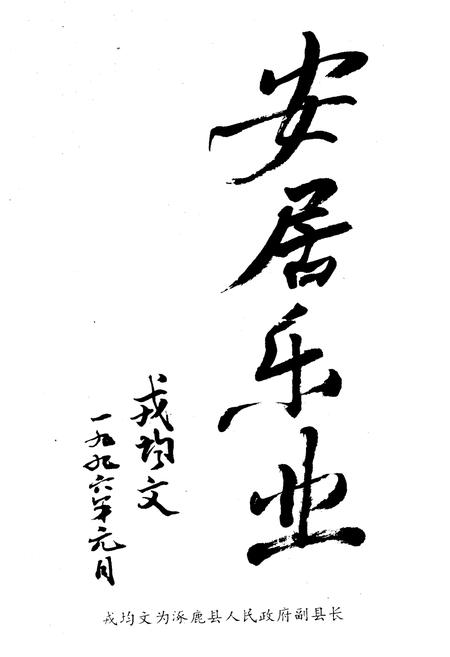 安居乐业
戎均文
一九九六年元月
戎均文为涿鹿县人民政府副县长